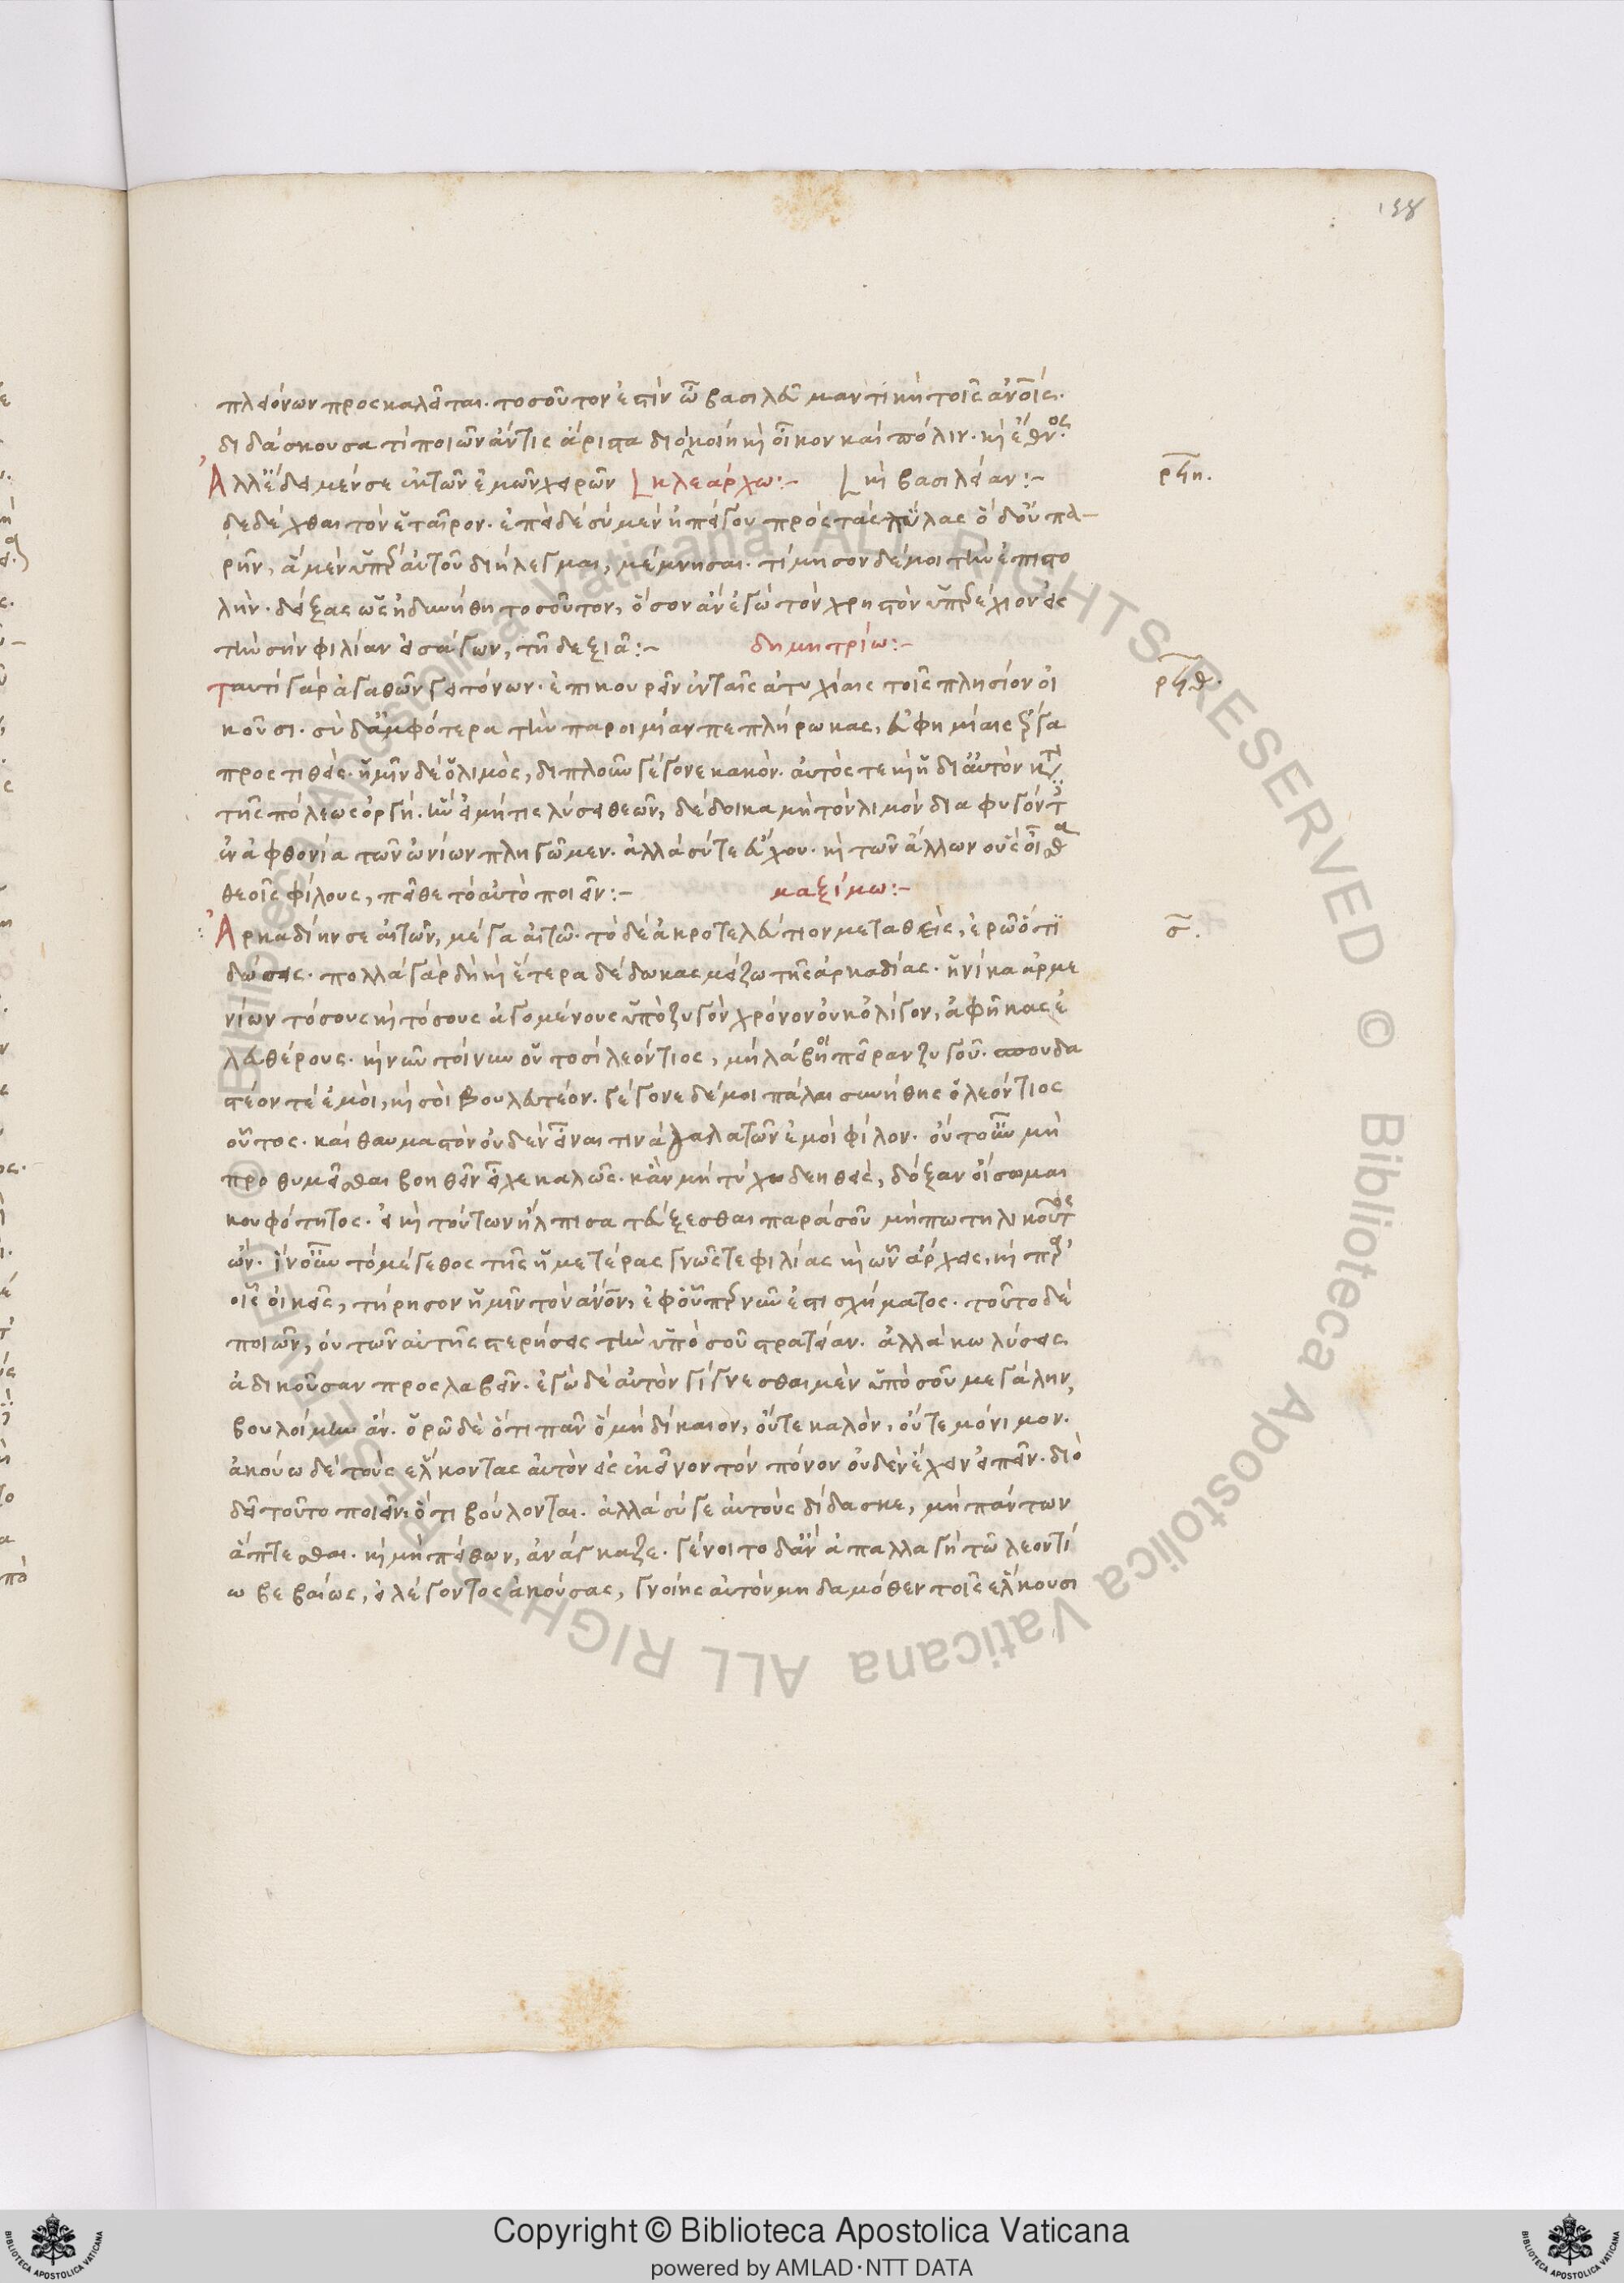 138
πλειόνων προσκαλεῖται. τοσοῦτον ἐστὶν ὦ βασιλεῦ μαντικὴ τοῖς ἀνοις.
διδάσκουσα τί ποιῶν ἄν τις ἄριστα διοικοίη κὶ οἶκον καὶ πόλιν. κὶ ἔθνος.
Ἀλλ' ἔδει μέν σε ἐκ τῶν ἐμῶν χειρῶν κλεάρχω:- κὶ βασιλείαν:-
ρϟη.
δεδέχθαι τὸν ἑταῖρον. ἐπεὶ δὲ σὺ μὲν ἠπείγου πρὸς τὰς πύλας ὁ δ' οὐ πα-
ρῆν, ἃ μὲν ὑπὲρ αὐτοῦ διείλεγμαι, μέμνησαι. τίμησον δέ μοι τὴν ἐπιστο
λήν. δείξας ὡς ἠδυνήθη τοσοῦτον, ὅσον ἂν ἐγὼ τὸν χρηστὸν ὑπερέχιον εἰς
τὴν σὴν φιλίαν εἰσάγων, τῆ δεξιᾶ:- δημητρίω:-
ταυτὶ γὰρ ἀγαθῶν γειτόνων. ἐπικουρεῖν ἐν ταῖς ἀτυχίαις τοῖς πλησίον οἰ
ρϟθ.
κοῦσι. σὺ δ' ἀμφότερα τὴν παροιμίαν πεπλήρωκας, εὐφημίαις ἔργα
προστιθείς. ἡμῖν δὲ ὁ λιμὸς, διπλοῦν γέγονε κακόν. αὐτός τε κὶ ἡ δι' αὐτὸν κτ
τῆς πόλεως ὀργή. ἣν εἰ μή τις λύσει θεῶν, δέδοικα μὴ τὸν λιμὸν διαφυγόντ
ἐν ἀφθονία τῶν ὠνίων πληγῶμεν. ἀλλὰ σύ τε εὔχου. κὶ τῶν ἄλλων οὓς οἶσθα
θεοῖς φίλους, πεῖθε τὸ αὐτὸ ποιεῖν:- μαξίμω:-
Ἀρκαδίην σε αἰτῶν, μέγα αἰτῶ. τὸ δὲ ἀκροτελεύτιον μεταθεὶς, ἐρῶ ὅτι
σ.
δώσεις. πολλὰ γὰρ δὴ κὶ ἕτερα δέδωκας μείζω τῆς ἀρκαδίας. ἡνίκα ἀρμε
νίων τόσους κὶ τόσους ἀγομένους ὑπὸ ζυγὸν χρόνον οὐκ ὀλίγον, ἀφῆκας ἐ
λευθέρους. κὶ νῦν τοίνυν οὑτοσὶ λεόντιος, μὴ λάβοι πεῖραν ζυγοῦ. σπουδα
στέον τε ἐμοὶ, κὶ σοὶ βουλευτέον. γέγονε δέ μοι πάλαι συνήθης ὁ λεόντιος
οὗτος. καὶ θαυμαστὸν οὐδὲν εἶναί τινα γαλατῶν ἐμοὶ φίλον. οὔτουν μὴ
προθυμεῖσθαι βοηθεῖν εἶχε καλῶς. κἂν μὴ τύχω δεηθεὶς, δόξαν οἴσομαι
κουφότητος. εἰ κὶ τούτων ἤλπισα τεύξεσθαι παρὰ σοῦ μήπω τηλικοῦτος
ὤν. ἵν' οὖν τὸ μέγεθος τῆς ἡμετέρας γνῶς τε φιλίας κὶ ὧν ἄρχεις, κὶ παρ'
οἷς οἰκεῖς, τήρησον ἡμῖν τὸν ἀνον, ἐφ' οὗπερ νῦν ἐστὶ σχήματος. τοῦτο δὲ
ποιῶν, οὐ τῶν αὐτῆς στερήσεις τὴν ὑπὸ σοῦ στρατείαν. ἀλλὰ κωλύσεις
ἀδικοῦσαν προσλαβεῖν. ἐγὼ δὲ αὐτὸν γίγνεσθαι μὲν ὑπὸ σοῦ μεγάλην,
βουλοίμην ἄν. ὁρῶ δὲ ὅτι πᾶν ὃ μὴ δίκαιον, οὔτε καλὸν, οὔτε μόνιμον.
ἀκούω δὲ τοὺς ἕλκοντας αὐτὸν εἰς ἐκεῖνον τὸν πόνον οὐδὲν ἔχειν εἰπεῖν. διὸ
δεῖ τοῦτο ποιεῖν, ὅτι βούλονται. ἀλλὰ σύ γε αὐτοὺς δίδασκε, μὴ πάντων
ἅπτεσθαι. κὶ μὴ πείθων, ἀνάγκαζε. γένοιτο δ' ἂν ἀπαλλαγὴ τῶ λεοντί
ω βεβαίως, εἰ λέγοντος ἀκούσας, γνοίης αὐτὸν μηδαμόθεν τοῖς ἕλκουσι
Copyright © Biblioteca Apostolica Vaticana
powered by AMLAD·NTT DATA